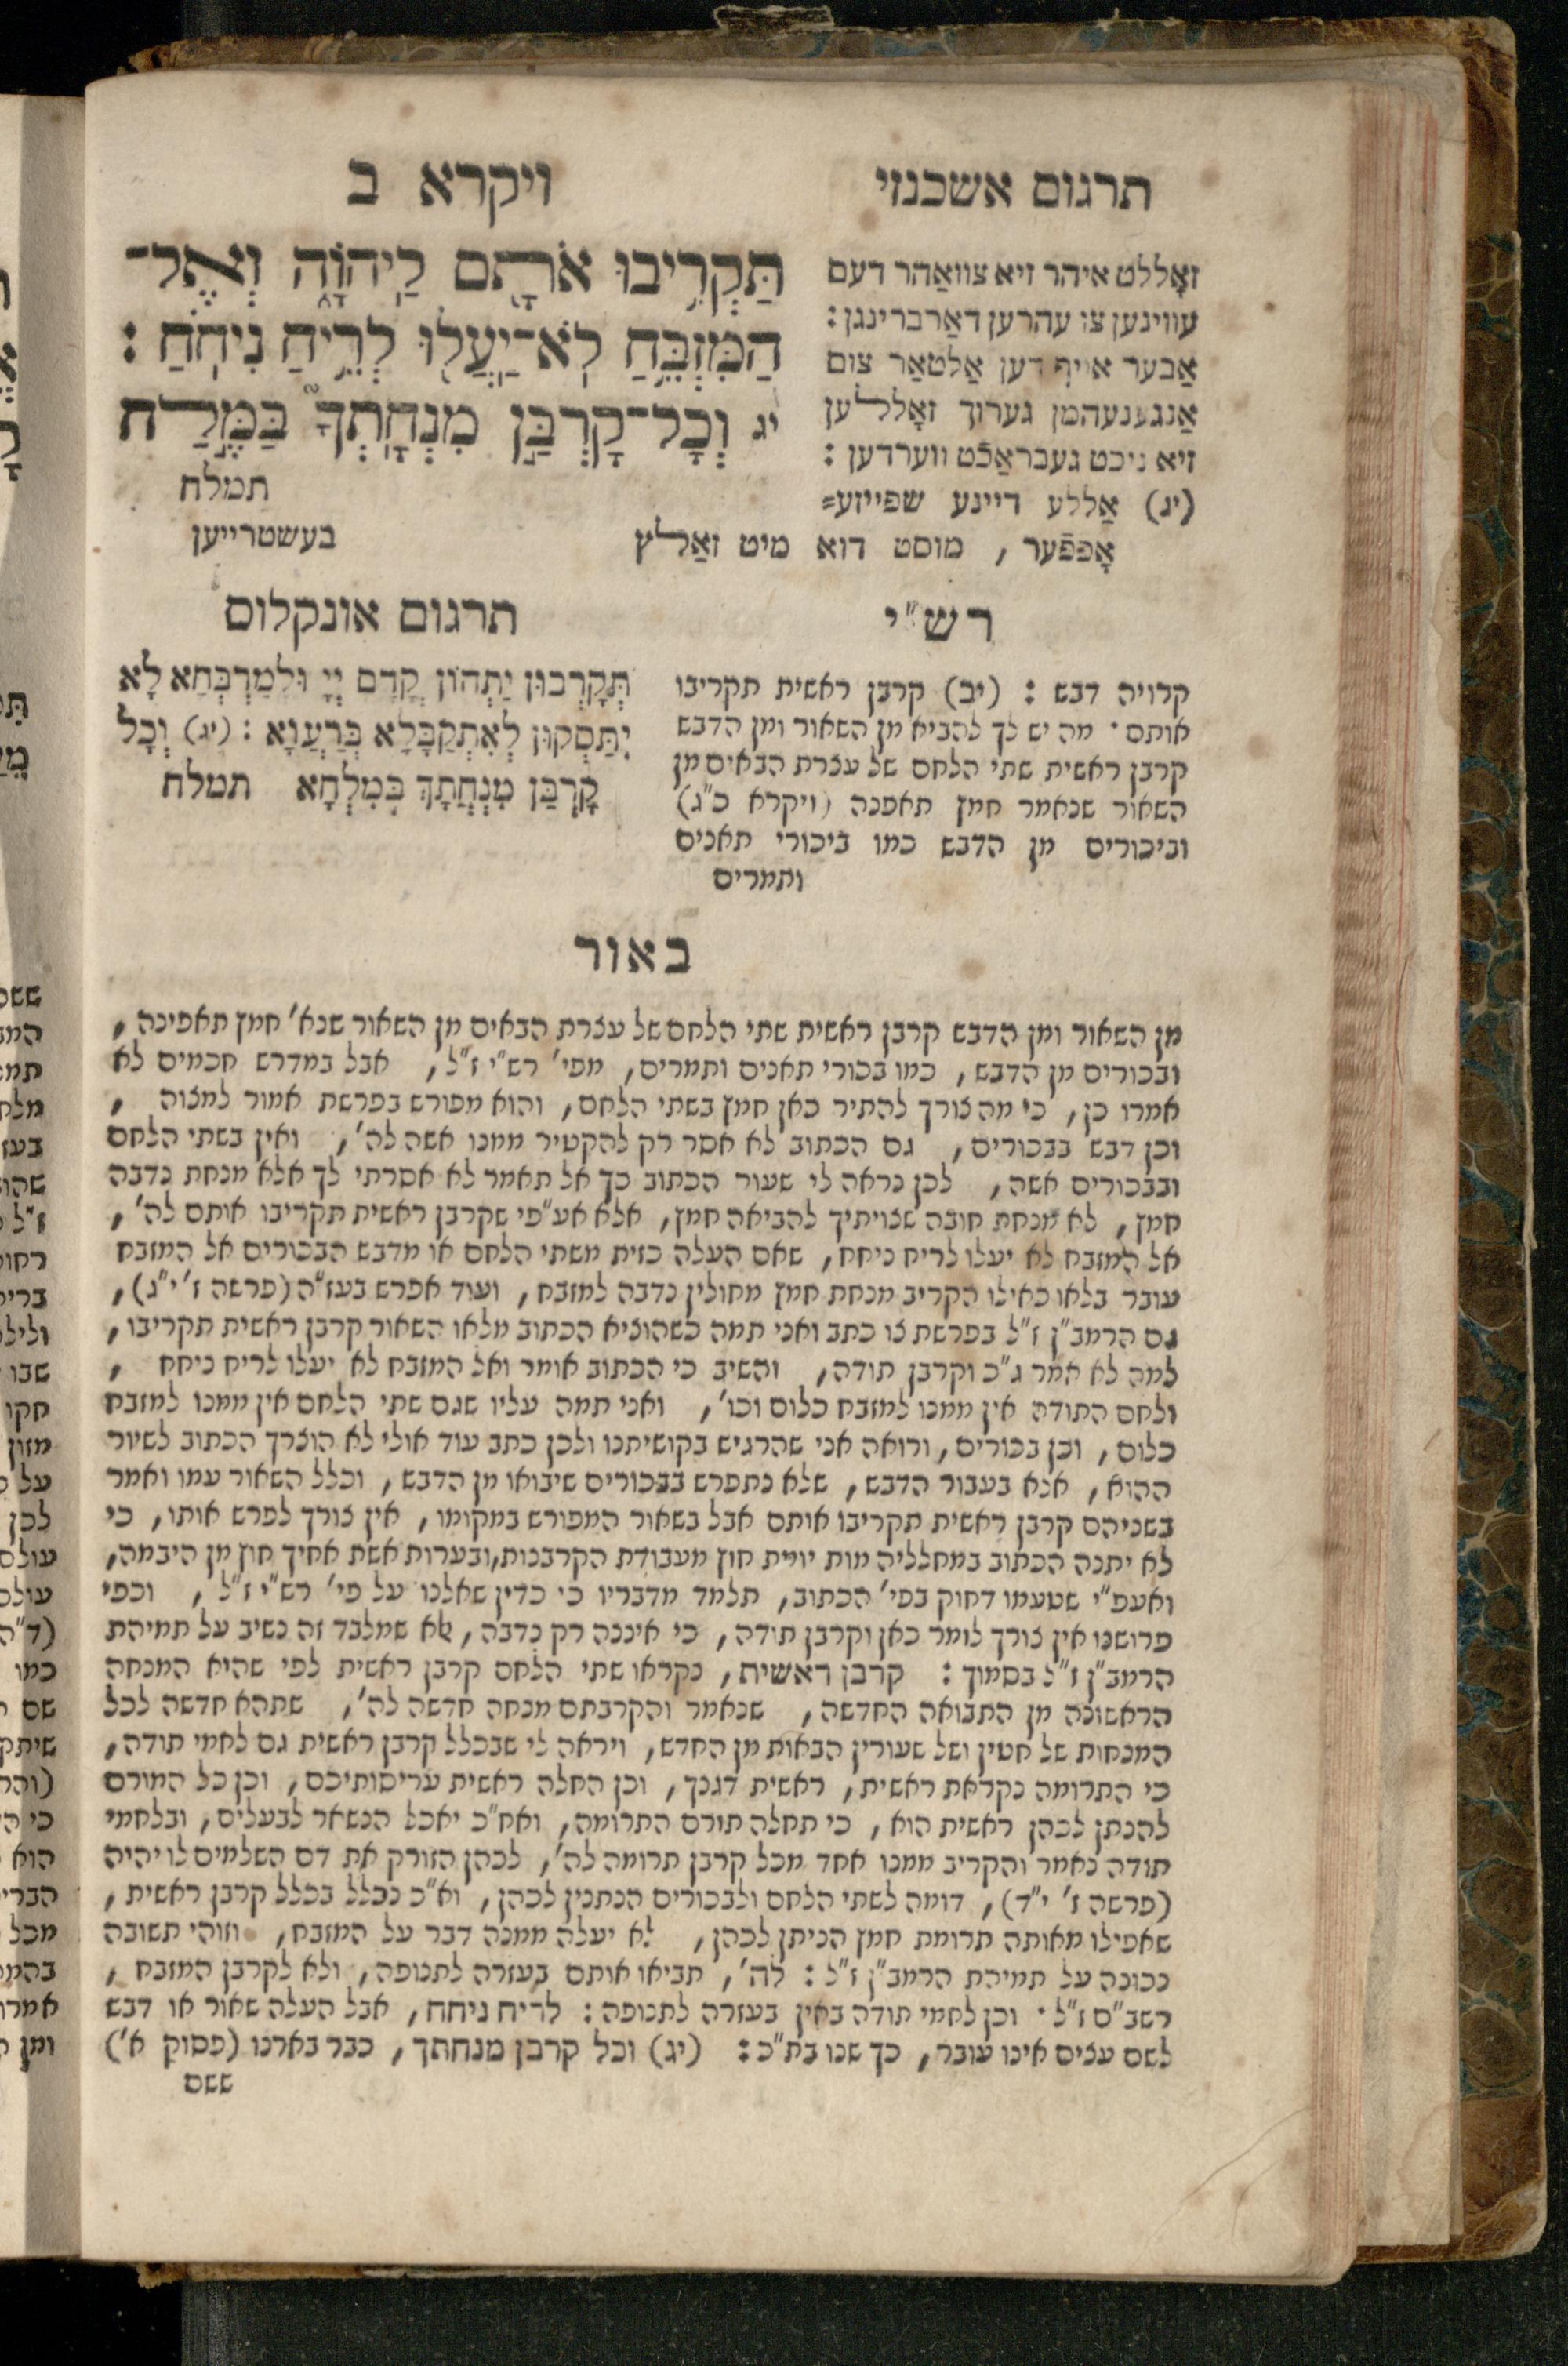 תרגום אשכנזי
זאָללט איהר זיא צוואַהר דעם
עוויגען צו עהרען דאַרברינגן :
אַבער אויף דען אַלטאַר צום
אַנגענעהמן גערוך זאָללען
זיא ניכט געבראַכֿט ווערדען :
(יג) אַללע דיינע שפייזע=
אָפפֿער , מוסט דוא מיט זאַלץ
בעשטרייען
ויקרא ב
תַּקְרִ֥יבוּ אֹתָ֖ם לַֽיהוָ֑ה וְאֶל־
הַמִּזְבֵּ֥חַ לֹא־יַֽעֲל֖וּ לְרֵ֥יחַ נִיחֹֽחַ :
יג וְכָל־קָרְבַּ֣ן מִנְחָֽתְךָ֮ בַּמֶּ֣לַח
תמלח
רש"י
קרויה דבש : (יב) קרבן ראשית תקריבו
אותם · מה יש לך להביא מן השאור ומן הדבש
קרבן ראשית שתי הלחם של עצרת הבאים מן
השאור שנאמר חמץ תאפנה (ויקרא כ"ג)
וביכורים מן הדבש כמו ביכורי תאנים
ותמרים
תרגום אונקלוס
תְּקָרְבוּן יַתְהוֹן קֳדָם יְיָ וּלְמַדְבְּחָא לָא
יִתַּסְקוּן לְאִתְקַבָּלָא בְּרַעֲוָא : (יג) וְכָל
קָרְבַּן מִנְחֲתָךְ בְּמִלְחָא תמלח
באור
מן השאור ומן הדבש קרבן ראשית שתי הלחם של עצרת הבאים מן השאור שנא' חמץ תאפינה ,
ובכורים מן הדבש , כמו בכורי תאנים ותמרים , מפי' רש"י ז"ל , אבל במדרש חכמים לא
אמרו כן , כי מה צורך להתיר כאן חמץ בשתי הלחם , והוא מפורש בפרשת אמור למצוה ,
וכן דבש בבכורים , גם הכתוב לא אסר רק להקטיר ממנו אשה לה' , ואין בשתי הלחם
ובבכורים אשה , לכן נראה לי שעור הכתוב כך אל תאמר לא אסרתי לך אלא מנחת נדבה
חמץ , לא מנחת חובה שצויתיך להביאה חמץ , אלא אע"פי שקרבן ראשית תקריבו אותם לה' ,
אל המזבח לא יעלו לריח ניחח , שאם העלה כזית משתי הלחם או מדבש הבכורים אל המזבח
עובר בלאו כאילו הקריב מנחת חמץ מחולין נדבה למזבח , ועוד אפרש בעז"ה (פרשה ז' י"ג) ,
גם הרמב"ן ז"ל בפרשת צו כתב ואני תמה כשהוציא הכתוב מלאו השאור קרבן ראשית תקריבו ,
למה לא אמר ג"כ וקרבן תודה , והשיב כי הכתוב אומר ואל המזבח לא יעלו לריח ניחח ,
ולחם התודה אין ממנו למזבח כלום וכו' , ואני תמה עליו שגם שתי הלחם אין ממנו למזבח
כלום , וכן בכורים , ורואה אני שהרגיש בקושיתנו ולכן כתב עוד אולי לא הוצרך הכתוב לשיור
ההוא , אלא בעבור הדבש , שלא נתפרש בבכורים שיבואו מן הדבש , וכלל השאור עמו ואמר
בשניהם קרבן ראשית תקריבו אותם אבל בשאור המפורש במקומו , אין צורך לפרש אותו , כי
לא יתנה הכתוב במחלליה מות יומת חוץ מעבודת הקרבנות, ובערות אשת אחיך חוץ מן היבמה,
ואעפ"י שטעמו דחוק בפי' הכתוב , תלמד מדבריו כי כדין שאלנו על פי' רש"י ז"ל , וכפי
פרושנו אין צורך לומר כאן וקרבן תודה , כי איננה רק נדבה , לא שמלבד זה נשיב על תמיהת
הרמב"ן ז"ל בסמוך : קרבן ראשית , נקראו שתי הלחם קרבן ראשית לפי שהיא המנחה
הראשונה מן התבואה החדשה , שנאמר והקרבתם מנחה חדשה לה' , שתהא חדשה לכל
המנחות של חטין ושל שעורין הבאות מן החדש , ויראה לי שבכלל קרבן ראשית גם לחמי תודה ,
כי התרומה נקראת ראשית , ראשית דגנך , וכן החלה ראשית עריסותיכם , וכן כל המורם
להנתן לכהן ראשית הוא , כי תחלה תורם התרומה , ואח"כ יאכל הנשאר לבעלים , ובלחמי
תודה נאמר והקריב ממנו אחד מכל קרבן תרומה לה' , לכהן הזורק את דם השלמים לו יהיה
(פרשה ז' י"ד) , דומה לשתי הלחם ולבכורים הנתנין לכהן , וא"כ נכלל בכלל קרבן ראשית ,
שאפילו מאותה תרומת חמץ הניתן לכהן , לא יעלה ממנה דבר על המזבח , וזוהי תשובה
נכונה על תמיהת הרמב"ן ז"ל : לה' , תביאו אותם בעזרה לתנופה , ולא לקרבן המזבח ,
רשב"ם ז"ל · וכן לחמי תודה באין בעזרה לתנופה : לריח ניחח , אבל העלה שאור או דבש
לשם עצים אינו עובר , כך שנו בת"כ : (יג) וכל קרבן מנחתך , כבר בארנו (פסוק א')
ששם